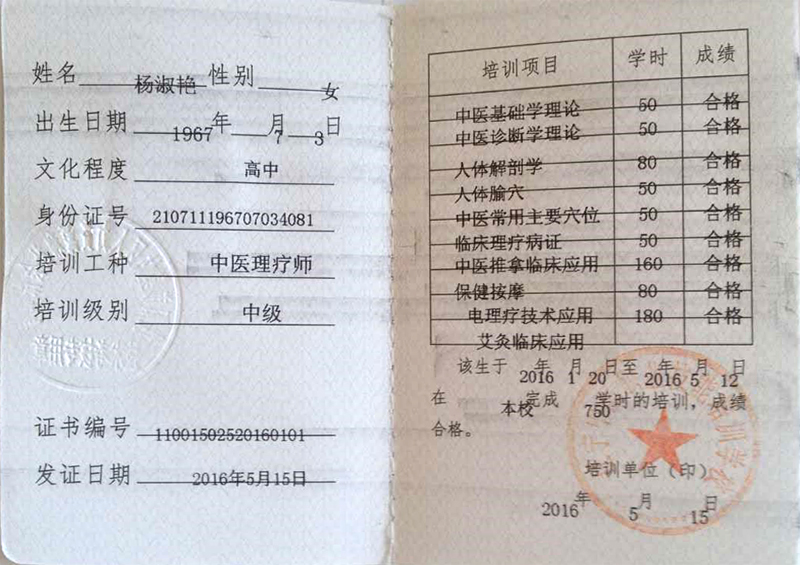 姓名 杨淑艳 性别 女
出生日期 1967年 7月 3日
文化程度 高中
身份证号 210711196707034081
培训工种 中医理疗师
培训级别 中级
证书编号 11001502520160101
发证日期 2016年5月15日
培训项目 学时 成绩
中医基础学理论 50 合格
中医诊断学理论 50 合格
人体解剖学 80 合格
人体腧穴 50 合格
中医常用主要穴位 50 合格
临床理疗病证 50 合格
中医推拿临床应用 160 合格
保健按摩 80 合格
电理疗技术应用 180 合格
艾灸临床应用
该生于 2016年 1月 20日至 2016年 5月 12日
在 本校 完成 750 学时的培训，成绩
合格。
培训单位（印）
2016年 5月 15日